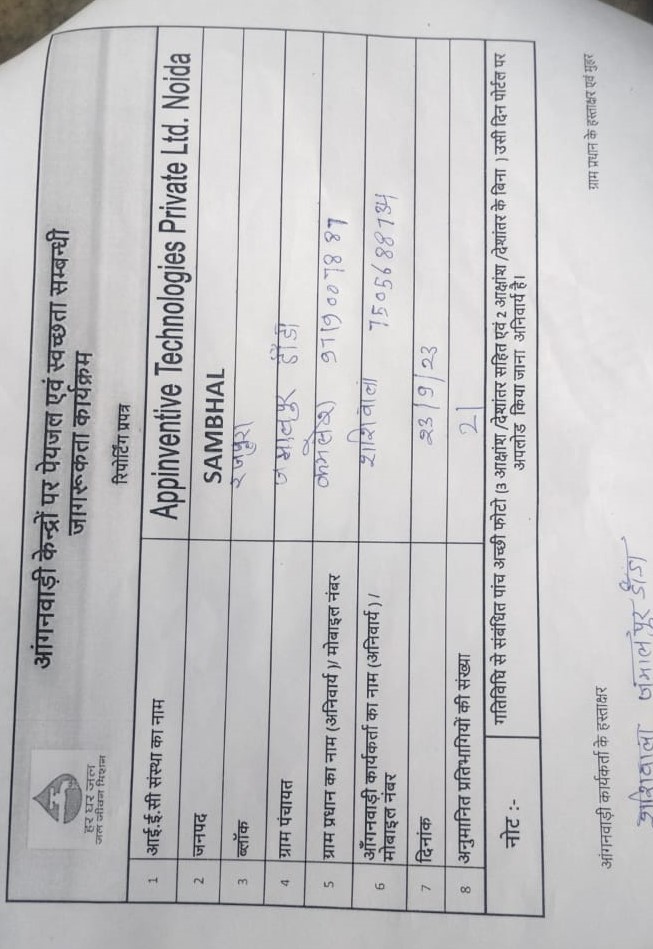 हर घर जल
जल जीवन मिशन
आंगनवाड़ी केन्द्रों पर पेयजल एवं स्वच्छता सम्बन्धी
जागरूकता कार्यक्रम
रिपोर्टिंग प्रपत्र
1 आई.ई.सी संस्था का नाम Appinventive Technologies Private Ltd. Noida
2 जनपद SAMBHAL
3 ब्लॉक रजपुरा
4 ग्राम पंचायत जमालपुर डांडा
5 ग्राम प्रधान का नाम (अनिवार्य )/ मोबाइल नंबर कमलेश 9719007887
6 आँगनवाड़ी कार्यकर्ता का नाम (अनिवार्य ) / शशिवाला 7505688734
मोबाइल नंबर
7 दिनांक 23/9/23
8 अनुमानित प्रतिभागियों की संख्या 21
नोट :- गतिविधि से संबंधित पांच अच्छी फोटो (3 आक्षांश /देशांतर सहित एवं 2 आक्षांश /देशांतर के बिना ) उसी दिन पोर्टल पर
अपलोड किया जाना अनिवार्य है।
आंगनवाड़ी कार्यकर्ता के हस्ताक्षर
ग्राम प्रधान के हस्ताक्षर एवं मुहर
शशिवाला जमालपूर डांडा